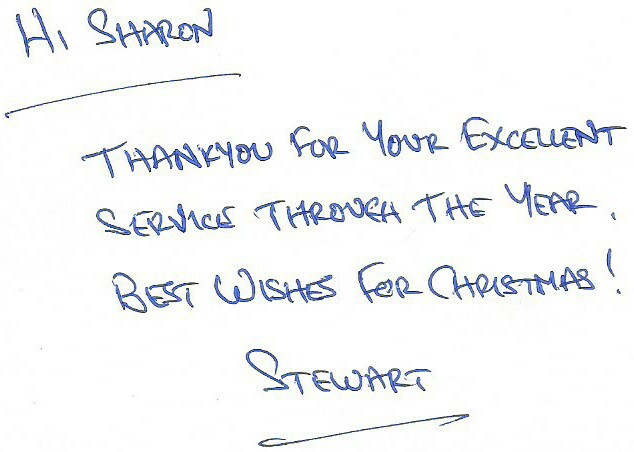 HI SHARON
THANKYOU FOR YOUR EXCELLENT
SERVICE THROUGH THE YEAR.
BEST WISHES FOR CHRISTMAS!
STEWART